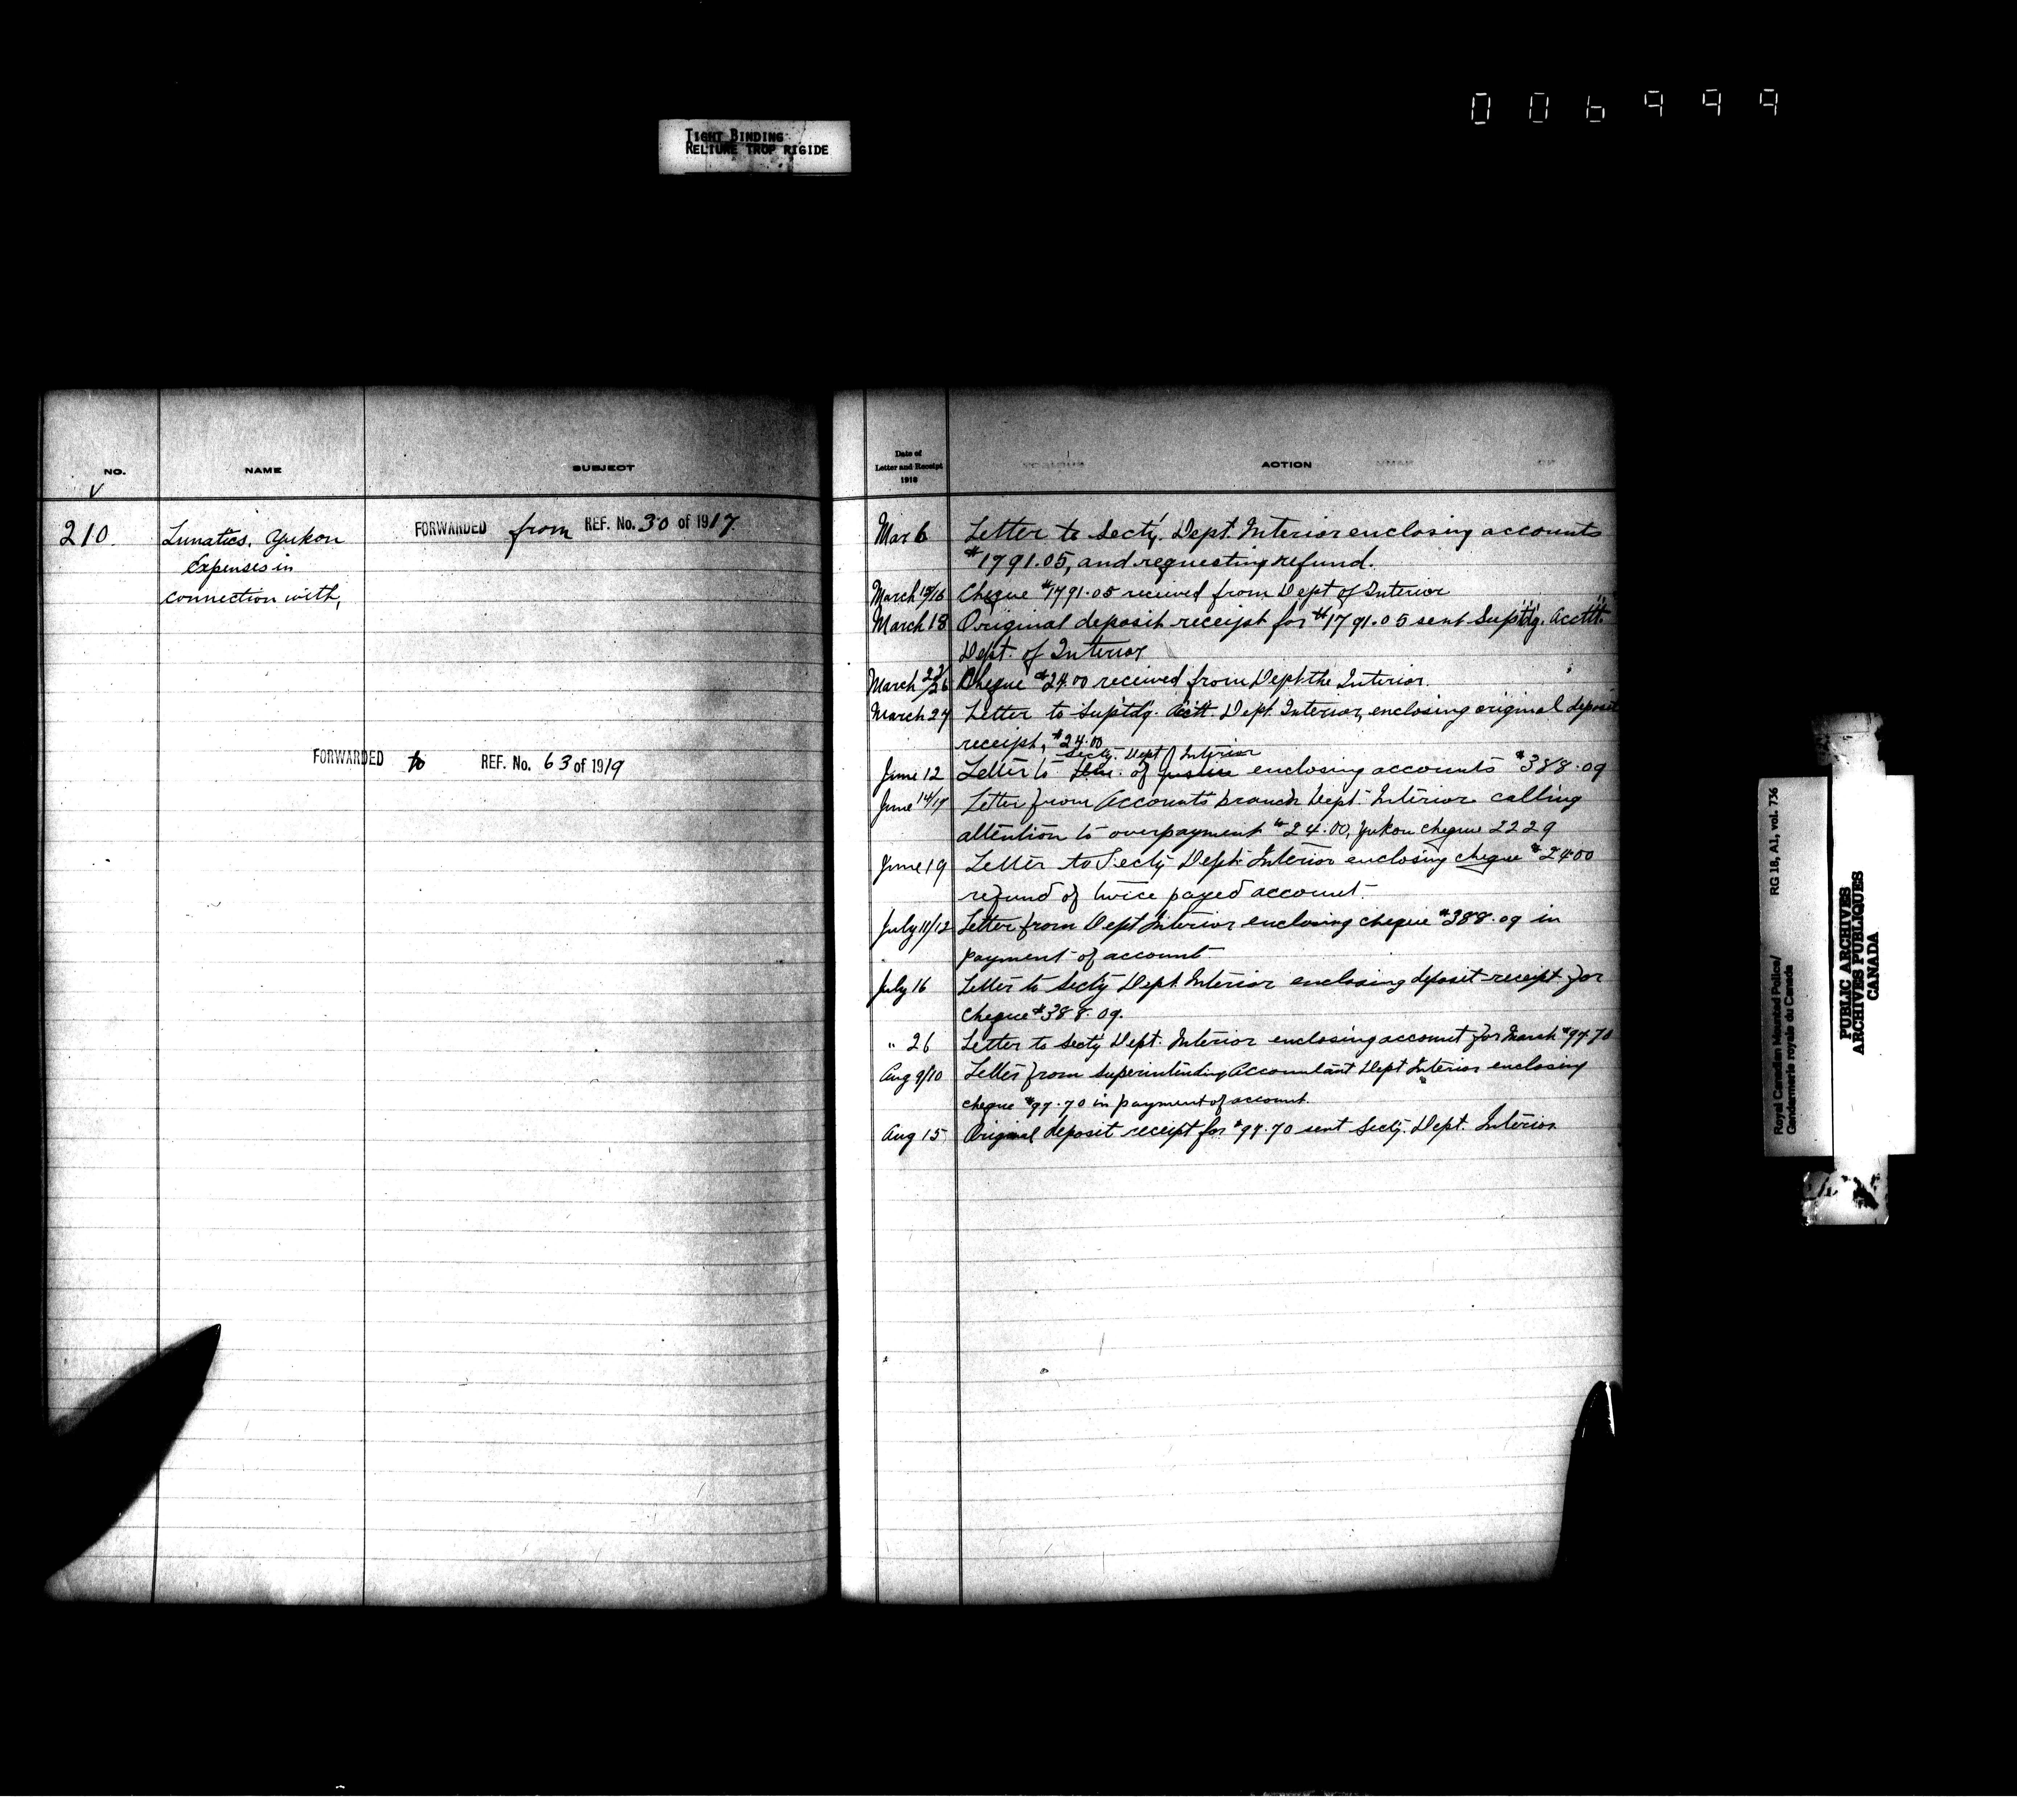 006999
TIGHT BINDING
RELIURE TROP RIGIDE
NO.
NAME
SUBJECT
210.
Lunatics, Yukon
Expenses in
connection with,
FORWARDED from REF. No. 30 of 1917.
FORWARDED to REF. No. 63 of 1919
Date of
Letter and Receipt
1918
ACTION
Mar 6 Letter to Secty, Dept. Interior enclosing accounts
$1791.05, and requesting refund.
March 15/16 Cheque $1791.05 received from Dept of Interior
March 18 Original deposit receipt for $1791.05 sent Suptdg. Acctt.
Dept. of Interior
March 22/26 Cheque $24.00 received from Dept the Interior.
March 27 Letter to Suptdg. Acctt. Dept. Interior, enclosing original deposit
receipt, $24.00
Secty. Dept of Interior
June 12 Letter to of Justice enclosing accounts $388.09
June 14/17 Letter from Accounts branch Dept. Interior calling
attention to overpayment $24.00, Yukon cheque 2229
June 19 Letter to Secty Dept. Interior enclosing cheque $24.00
refund of twice payed account.
July 11/12 Letter from Dept Interior enclosing cheque $388.09 in
payment of account.
July 16 Letter to Secty Dept Interior enclosing deposit receipt for
cheque $388.09.
" 26 Letter to Secty Dept. Interior enclosing account for March $97.70
Aug 9/10 Letter from Superintending Accountant Dept Interior enclosing
cheque $97.70 in payment of account.
Aug 15 Original deposit receipt for $97.70 sent Secty. Dept. Interior
Royal Canadian Mounted Police/
Gendarmerie royale du Canada
RG 18, A1, vol. 736
PUBLIC ARCHIVES
ARCHIVES PUBLIQUES
CANADA